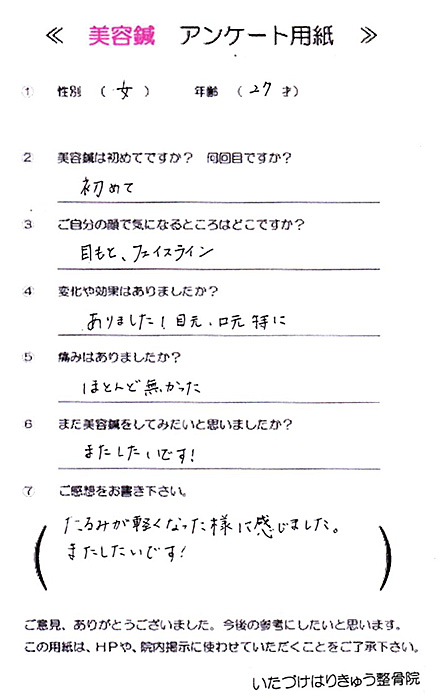 ≪ 美容鍼 アンケート用紙 ≫
① 性別 （ 女 ） 年齢 （ 27 才）
② 美容鍼は初めてですか？ 何回目ですか？
初めて
③ ご自分の顔で気になるところはどこですか？
目もと、フェイスライン
④ 変化や効果はありましたか？
ありました！目元、口元 特に
⑤ 痛みはありましたか？
ほとんど無かった
6 また美容鍼をしてみたいと思いましたか？
またしたいです！
⑦ ご感想をお書き下さい。
たるみが軽くなった様に感じました。
またしたいです！
ご意見、ありがとうございました。今後の参考にしたいと思います。
この用紙は、HPや、院内掲示に使わせていただくことをご了承下さい。
いたづけはりきゅう整骨院